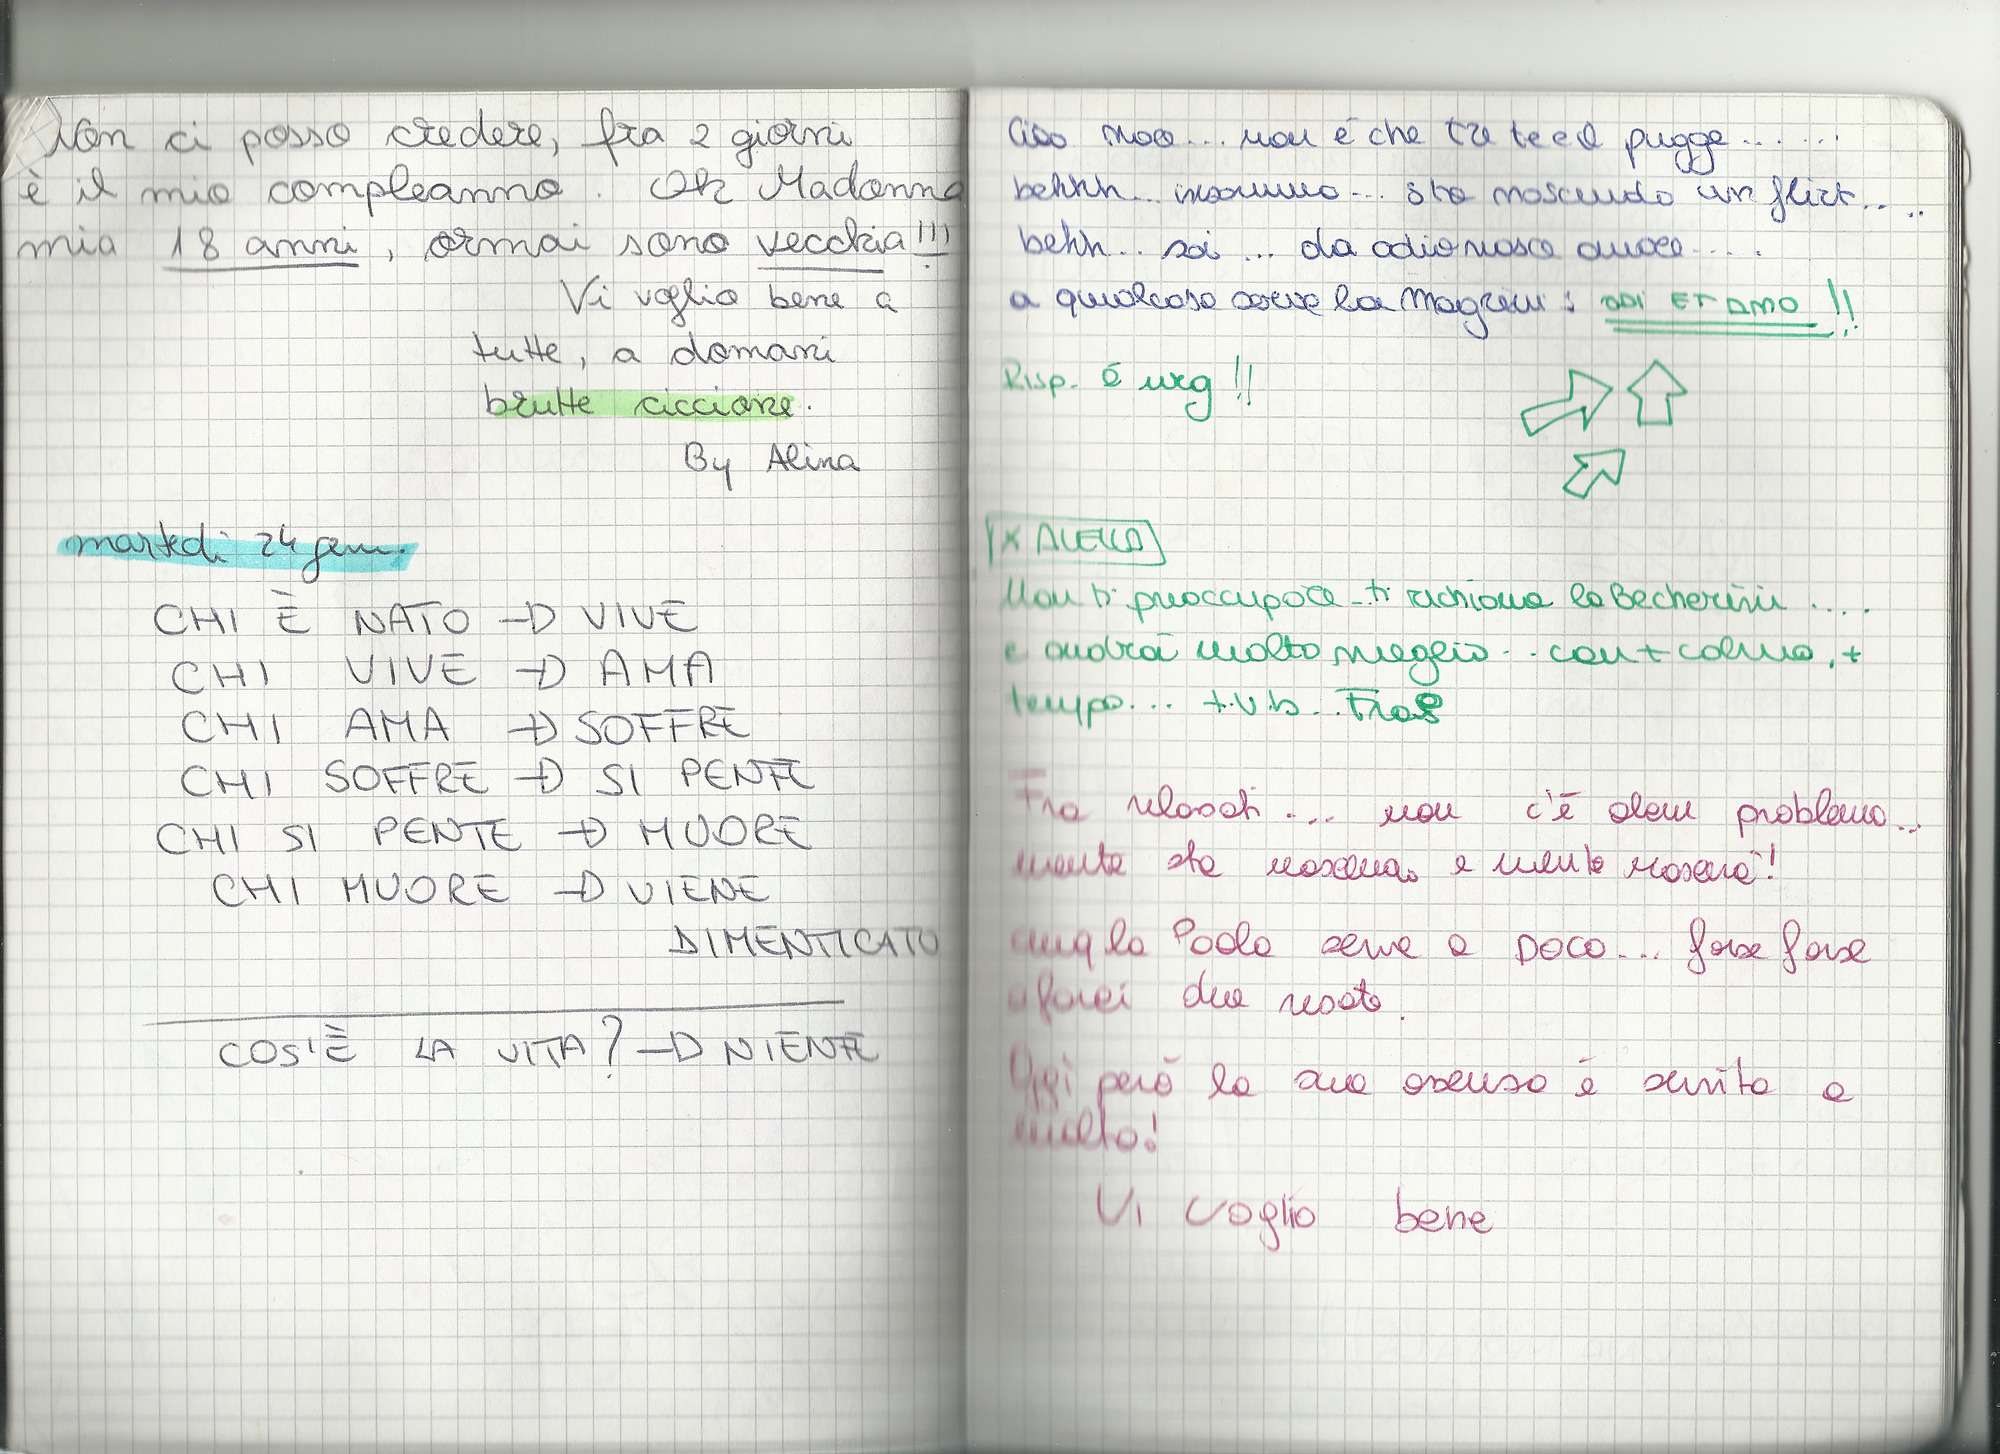 Non ci posso credere, fra 2 giorni
è il mio compleanno. Oh Madonna
mia 18 anni, ormai sono vecchia!!!
Vi voglio bene a
tutte, a domani
brutte ciccione.
By Alina
martedì 24 genn.
CHI È NATO → VIVE
CHI VIVE → AMA
CHI AMA → SOFFRE
CHI SOFFRE → SI PENTE
CHI SI PENTE → MUORE
CHI MUORE → VIENE
DIMENTICATO
COS'È LA VITA? → NIENTE
Ciao moo... non è che tra te e il pugge......
behhh... insomma... sta nascendo un flirt....
behh.. sai... da odio nasce amore....
a qualcosa serve la Magrini: ODI ET AMO!!
Risp. è urg!!
X ALELLA
Non ti preoccupare - ti richiama la Becherini ....
e andrà molto meglio.. con + calma, +
tempo... t.v.b.. Fra
Fra ... non c'è alcun problema...
niente sta nascendo e niente nascerà!
la Paola serve a poco... forse forse
due
Oggi però la sua assenza è servita a
molto!
Vi voglio bene